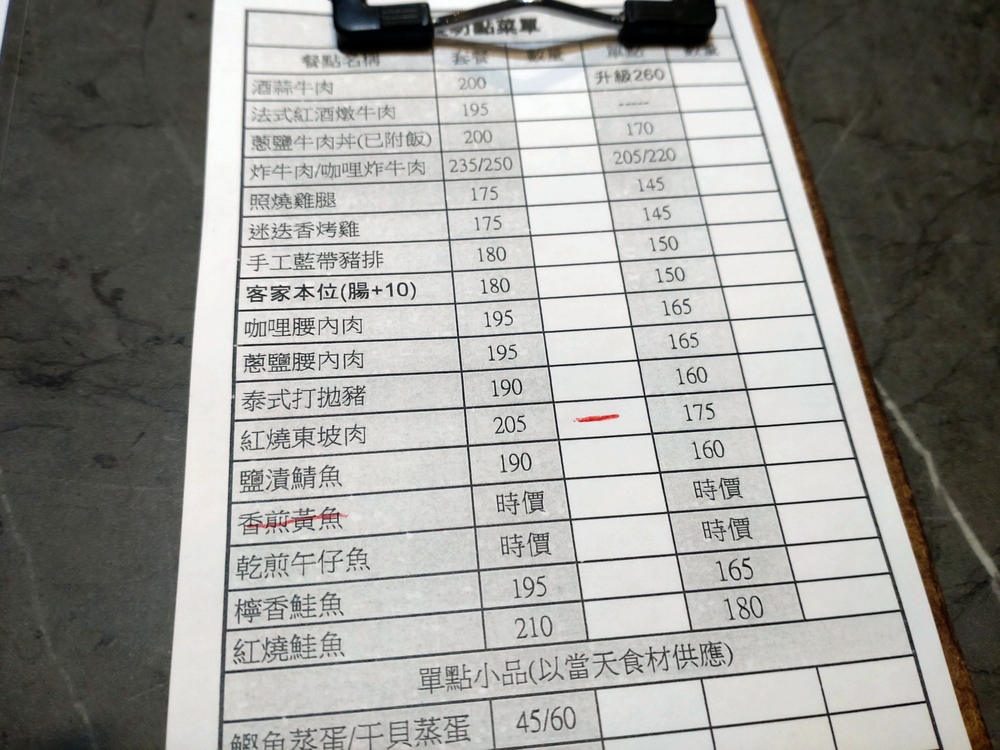 點菜單
餐點名稱 套餐 數量 單點 數量
酒蒜牛肉 200 升級260
法式紅酒燉牛肉 195 -----
蔥鹽牛肉丼(已附飯) 200 170
炸牛肉/咖哩炸牛肉 235/250 205/220
照燒雞腿 175 145
迷迭香烤雞 175 145
手工藍帶豬排 180 150
客家本位(腸+10) 180 150
咖哩腰內肉 195 165
蔥鹽腰內肉 195 165
泰式打拋豬 190 160
紅燒東坡肉 205 175
鹽漬鯖魚 190 160
香煎黃魚 時價 時價
乾煎午仔魚 時價 時價
檸香鮭魚 195 165
紅燒鮭魚 210 180
單點小品(以當天食材供應)
鰹魚蒸蛋/干貝蒸蛋 45/60